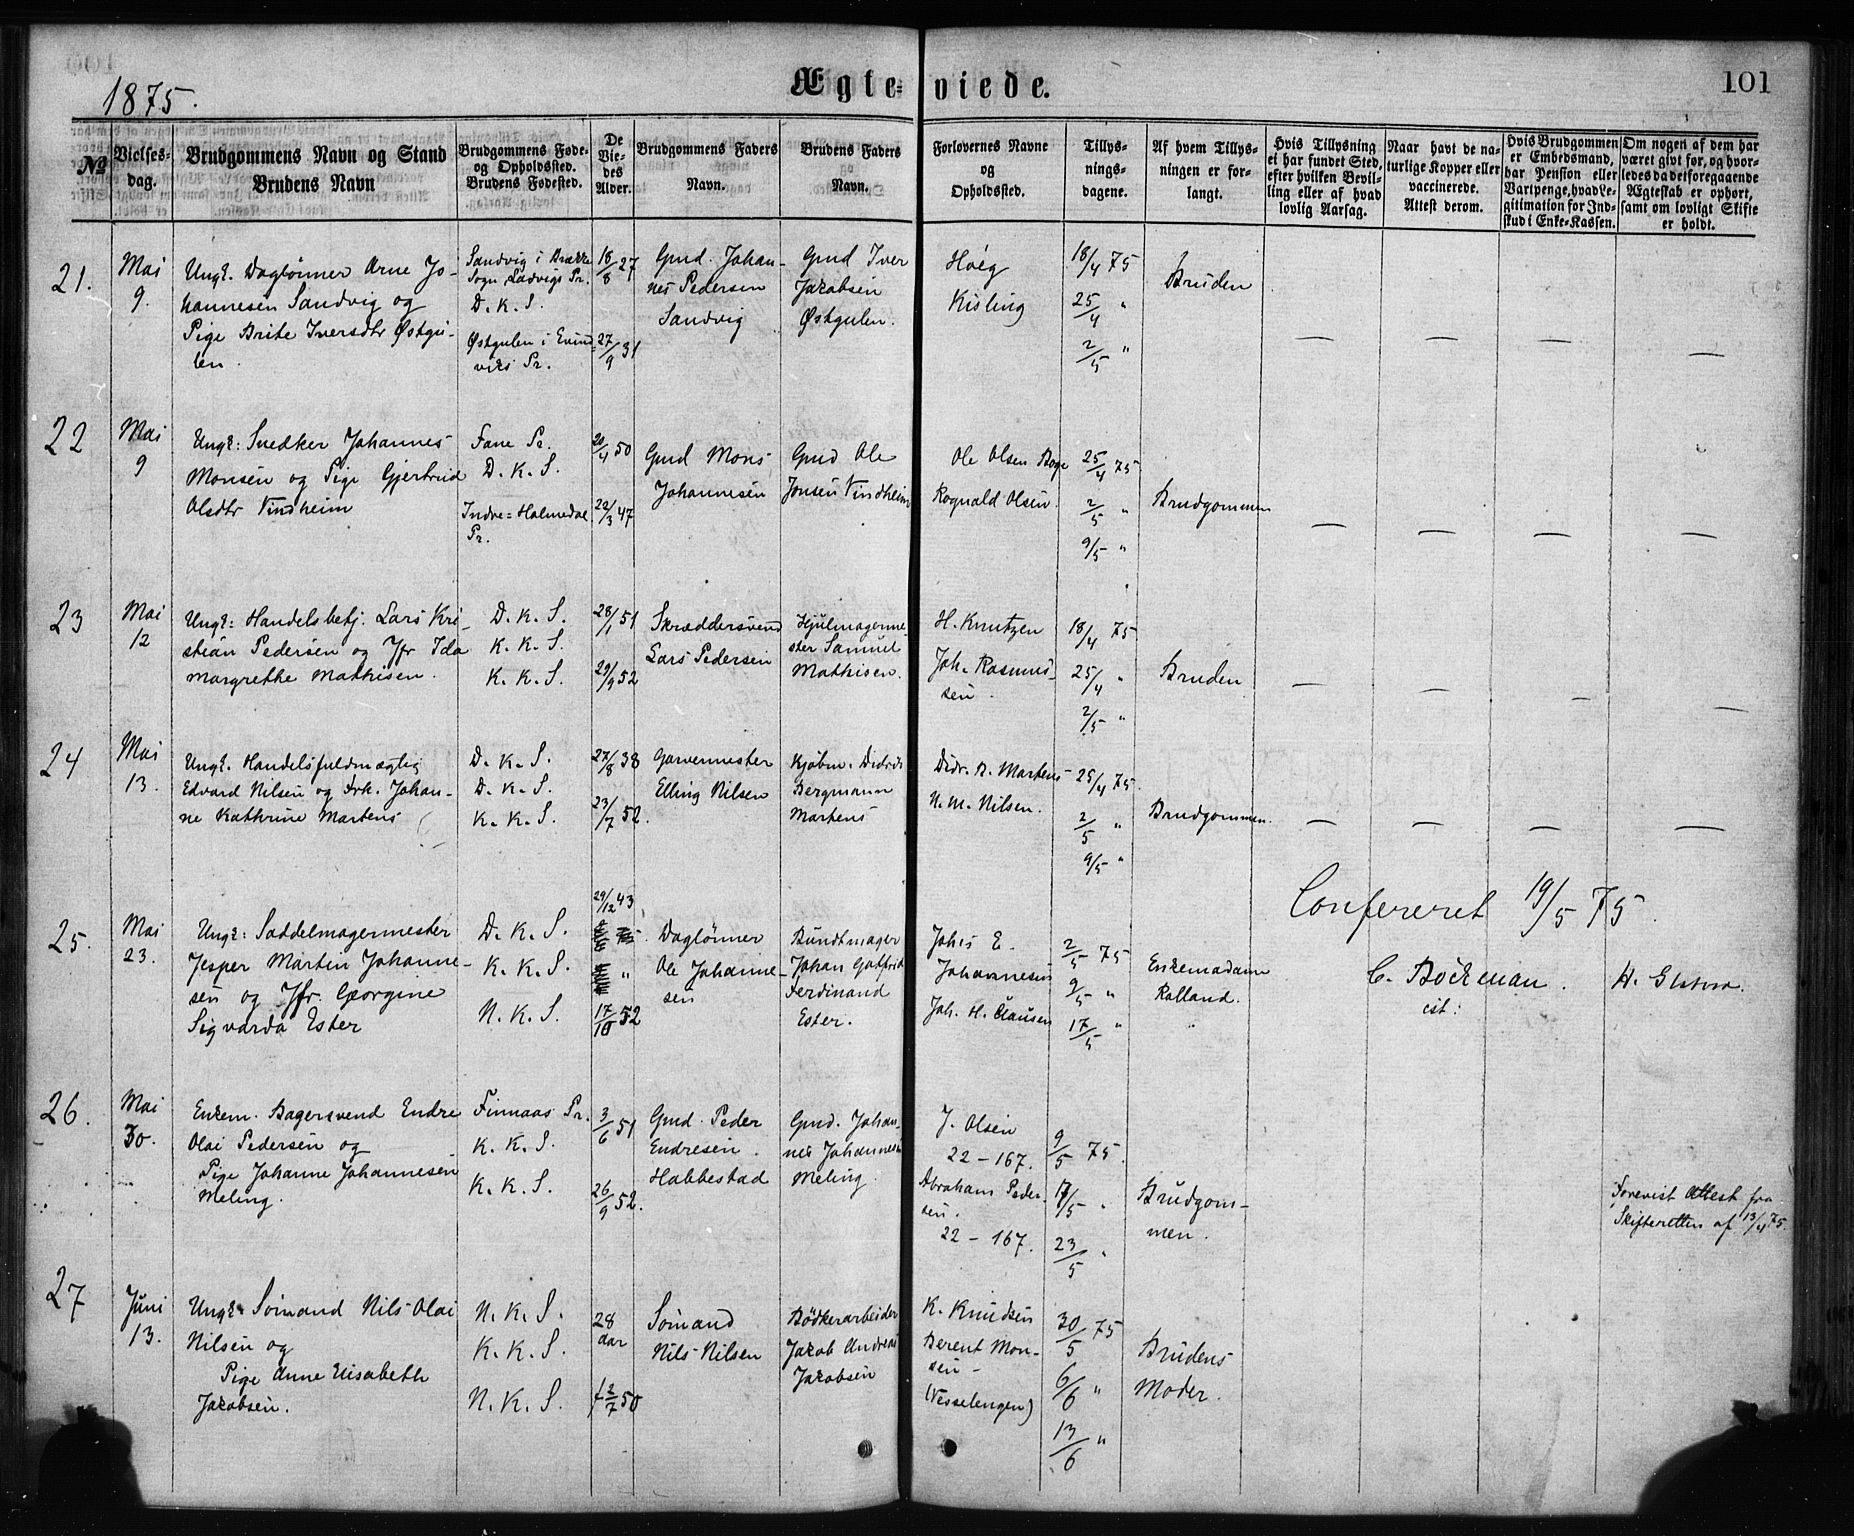 1875.
Ægte-viede.
101
No
Vielses-dag.
Brudgommens Navn og Stand
Brudens Navn
Brudgommens Føde- og Opholdssted.
Brudens Fødested.
De Vie-des Alder.
Brudgommens Faders Navn.
Brudens Faders Navn.
Forlovernes Navne og Opholdssted.
Tillys-nings-dagene.
Af hvem Tillys-ningen er for-langt.
Hvis Tillysning ei har fundet Sted, efter hvilken Bevil-ling eller af hvad lovlig Aarsag.
Naar havt de na-turlige Kopper eller vaccinerede. Attest derom.
Hvis Brudgommen er Embedsmand, har Pension eller Vartpenge, hvad Le-gitimation for Ind-skud i Enke-Kassen.
Om nogen af dem har været gift før, og hvor-ledes da det foregaaende Ægteskab er ophørt, samt om lovligt Skifte er holdt.
21.
Mai
9.
Ungk. Daglønner Arne Jo-
hannesen Sandvig og
Pige Brite Iversdtr Østgu-
len.
Sandvig i Brække
Sogn Ladvigs Pr.
D. K. S.
Østgulen i Evind-
viks Pr.
18/8 27
27/9 31
Gmd. Johan-
nes Pedersen
Sandvig
Gmd Iver
Jakobsen
Østgulen.
Høeg
Kisling
18/4 75
25/4 "
2/5 "
Bruden
22
Mai
9
Ungk: Snedker Johannes
Monsen og Pige Gjertrud
Olsdtr Vindheim
Fane Pr.
D. K. S.
Indre=Holmedal
Pr.
20/4 50
22/3 47
Gmd Mons
Johannesen
Gmd Ole
Jonsen Vindheim
Ole Olsen Boge
Rognald Olsen
25/4 75
2/5 "
9/5 "
Brudgommen
23
Mai
12
Ungk: Handelsbetj. Lars Kri-
stian Pedersen og Jfr Ida
Margrethe Mathisen.
D. K. S.
K. K. S.
K. K. S.
28/1 51
29/9 52
Skræddersvend
Lars Pedersen
Hjulmagerme-
ster Samuel
Mathisen.
H. Knutzen
Joh. Rasmus-
sen.
18/4 75
25/4 "
2/5 "
Bruden
24
Mai
13.
Ungk. Handelsfuldmægtig
Edvard Nilsen og Frk. Johan-
ne Kathrine Martens
D. K. S.
D. K. S.
K. K. S.
27/8 38
23/7 52.
Garvermester
Elling Nilsen
Kjøbm. Didrik
Bergmann
Martens
Didr. B. Martens
N. M. Nilsen.
25/4 75.
2/5 "
9/5 "
Brudgommen.
Confereret 19/5 75.
C. Böckman.
cst:
25.
Mai
23.
Ungk: Saddelmagermester
Jesper Martin Johanne-
sen og Jfr. Georgine
Sigvarda Ester
D. K. S.
K. K. S.
N. K. S.
29/12 43
17/10 52
Daglønner
Ole Johanne-
sen
Bundtmager
Johan Gotfrid
Ferdinand
Ester.
Johs E.
Johannesen
Joh. H. Clausen
2/5 75
9/5 "
17/5 "
Enkemadame
Ralland.
26.
Mai
30.
Enkem. Bagersvend Endre
Olai Pedersen og
Pige Johanne Johannesen
Meling.
Finnaas Pr.
K. K. S.
K. K. S.
3/6 51
26/9 52.
Gmd. Peder
Endresen
Habbestad
Gmd. Johan-
nes Johannesen
Meling.
J. Olsen
22 - 167.
Abraham Peder-
sen.
22 - 167.
9/5 75.
17/5 "
23/5 "
Brudgom-
men.
Forevist Attest fra
Skifteretten af 13/4 75.
27
Juni
13.
Ungk. Sømand Nils Olai
Nilsen og
Pige Anne Elisabeth
Jakobsen.
N. K. S.
K. K. S.
N. K. S.
28
aar
2/7 50
Sømand
Nils Nilsen
Bødkerarbeider
Jakob Andreas
Jakobsen
K. Knudsen
Berent Mon-
sen -
(Vesselengen)
30/5 75
6/6 "
13/6 "
Brudens
Moder.